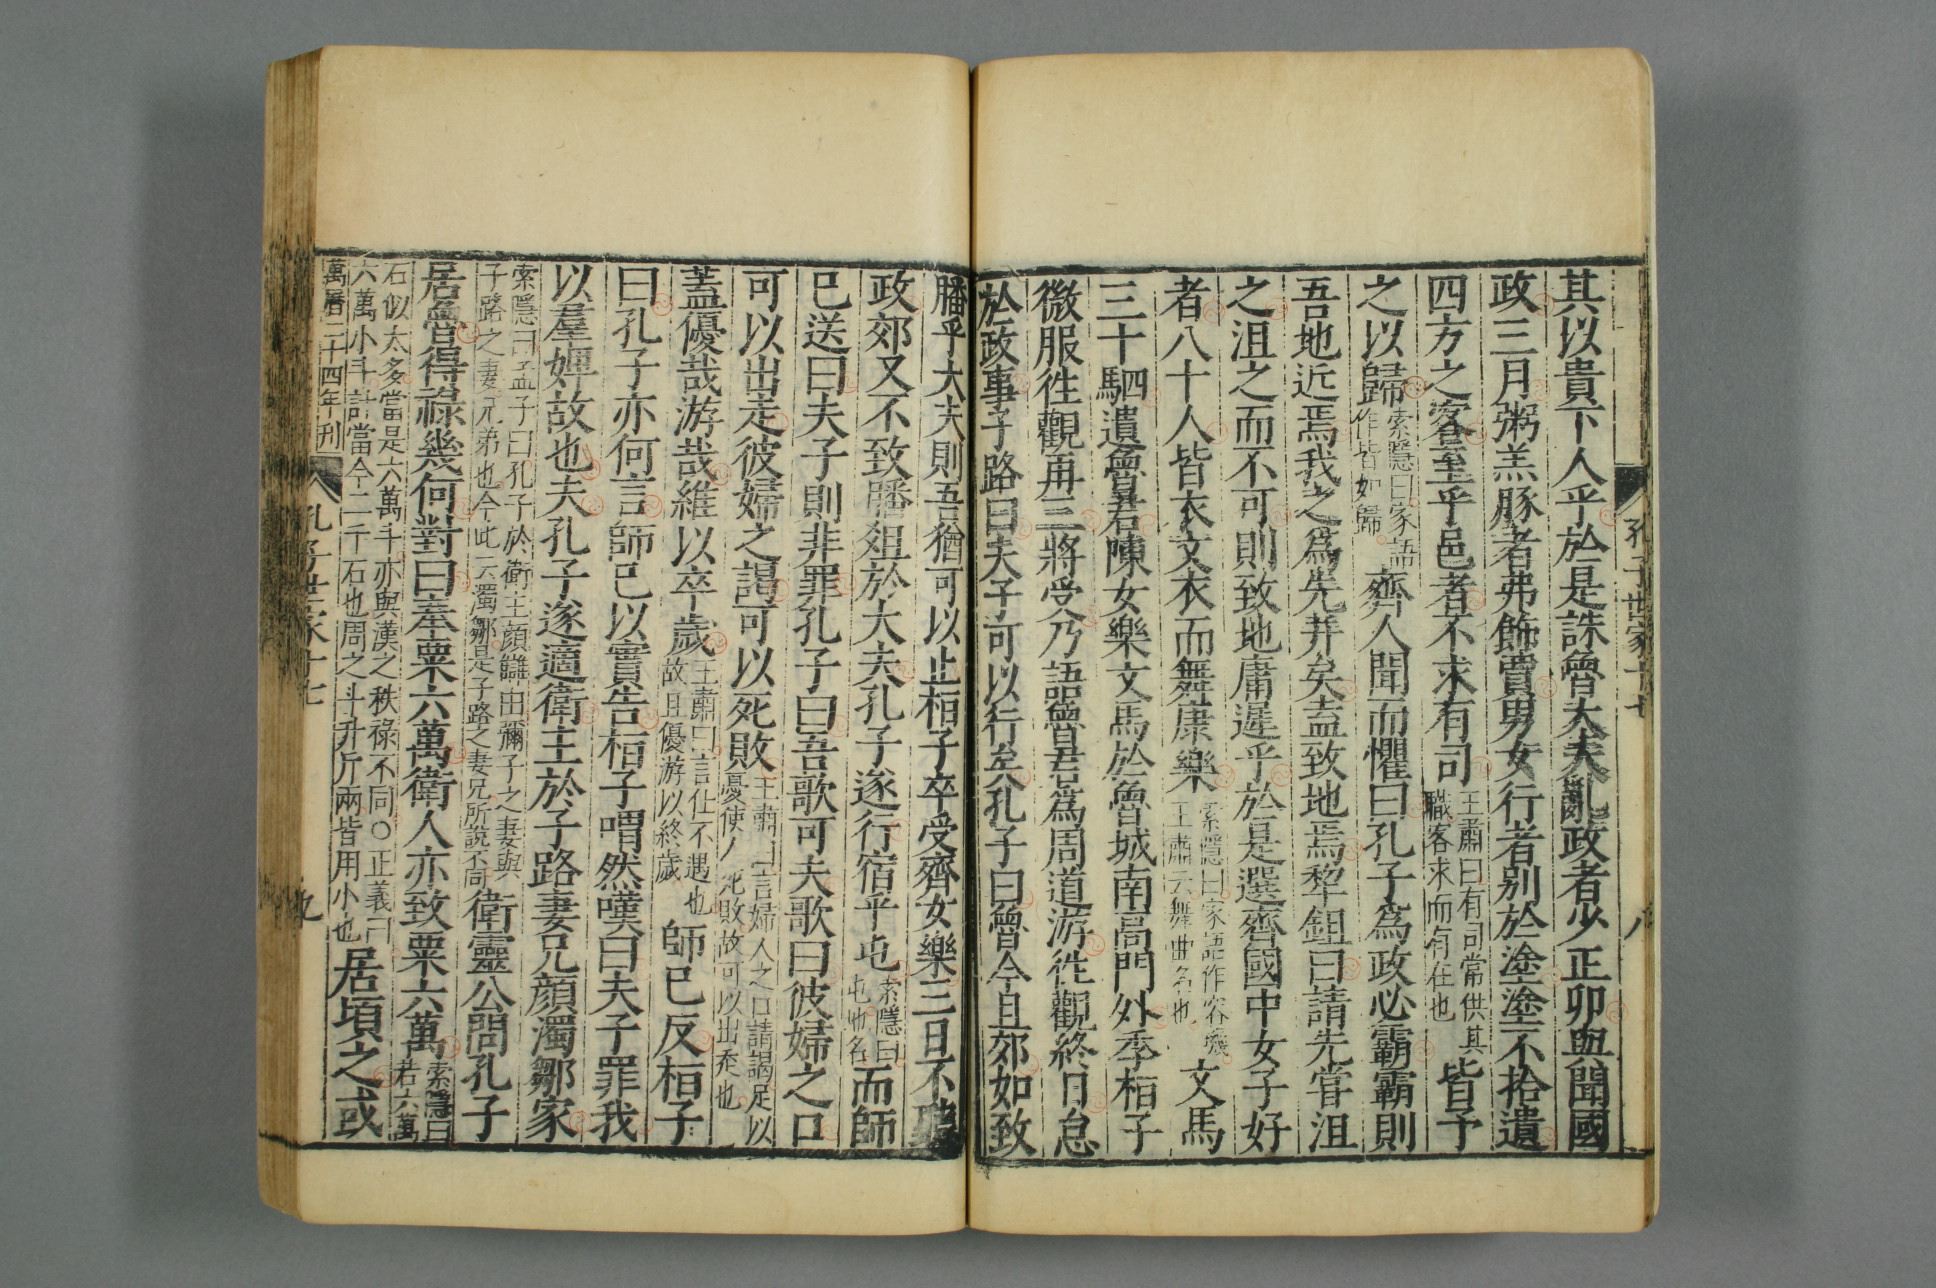 孔子世家十七
八
其以貴下人乎於是誅魯大夫亂政者少正卯與聞國
政三月粥羔豚者弗飾賈男女行者別於塗塗不拾遺
四方之客至乎邑者不求有司王肅曰有司常供其職客求而有在也皆予
之以歸索隱曰家語作皆如歸齊人聞而懼曰孔子爲政必霸霸則
吾地近焉我之爲先并矣盍致地焉犂鉏曰請先嘗沮
之沮之而不可則致地庸遲乎於是選齊國中女子好
者八十人皆衣文衣而舞康樂索隱曰家語作容璣王肅云舞曲名也文馬
三十駟遺魯君陳女樂文馬於魯城南高門外季桓子
微服徃觀再三將受乃語魯君爲周道游徃觀終日怠
於政事子路曰夫子可以行矣孔子曰魯今且郊如致
膰乎大夫則吾猶可以止桓子卒受齊女樂三日不聽
政郊又不致膰俎於大夫孔子遂行宿乎屯索隱曰屯地名而師
已送曰夫子則非罪孔子曰吾歌可夫歌曰彼婦之口
可以出走彼婦之謁可以死敗王肅曰言婦人之口請謁足以憂使人死敗故可以出走也
蓋優哉游哉維以卒歲王肅曰言仕不遇也故且優游以終歲師已反桓子
曰孔子亦何言師已以實告桓子喟然嘆曰夫子罪我
以羣婢故也夫孔子遂適衛主於子路妻兄顔濁鄒家
索隱曰孟子曰孔子於衛主顔讎由彌子之妻與子路之妻兄弟也今此云濁鄒是子路之妻兄所說不同衛靈公問孔子
居魯得祿幾何對曰奉粟六萬衛人亦致粟六萬索隱曰若六萬
石似太多當是六萬斗亦與漢之秩祿不同○正義曰六萬小斗計當今二千石也周之斗升斤兩皆用小也居頃之或
萬曆二十四年刊
孔子世家十七
九